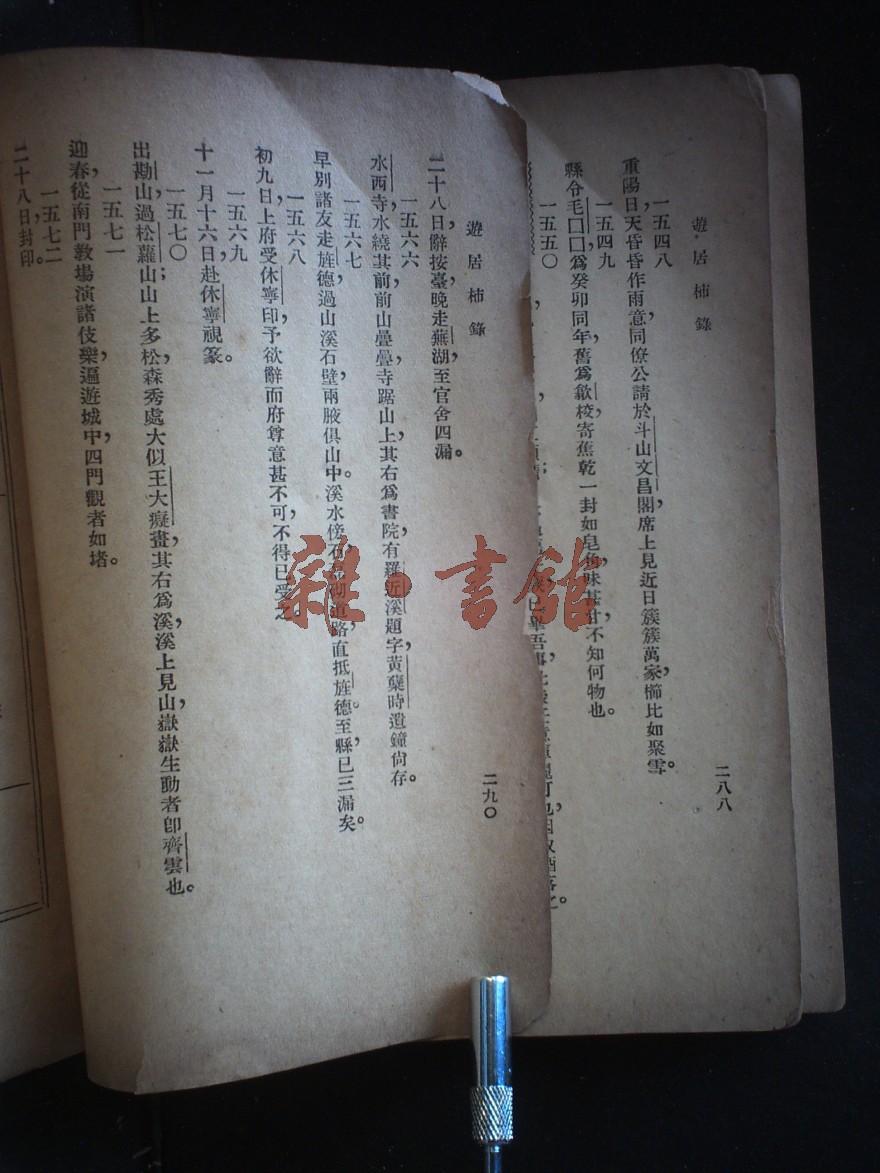 遊居柿錄
二八八
一五四八
重陽日，天昏昏作雨意，同僚公請於斗山文昌閣，席上見近日簇簇萬家，櫛比如聚雪。
一五四九
縣令毛囗囗，爲癸卯同年，舊爲歙校，寄蕉乾一封，如皂角，味甚甘，不知何物也。
一五五〇
遊居柿錄
二九〇
二十八日，辭按臺，晚走蕪湖，至官舍四漏。
一五六六
水西寺，水繞其前，前山疊疊，寺踞山上，其右爲書院，有羅近溪題字，黃蘗時遺鐘尙存。
一五六七
早別諸友，走旌德，過山溪石壁，兩腋俱山，中溪水傍石道路，直抵旌德。至縣已三漏矣。
一五六八
初九日，上府受休寧印，予欲辭，而府尊意甚不可，不得已受之。
一五六九
十一月十六日，赴休寧視篆。
一五七〇
出勘山，過松蘿山；山上多松，森秀處大似王大癡畫，其右爲溪，溪上見山，嶽嶽生動者，卽齊雲也。
一五七一
迎春，從南門敎場演諸伎樂，遍遊城中，四門觀者如堵。
一五七二
二十八日，封印。
雜·書館